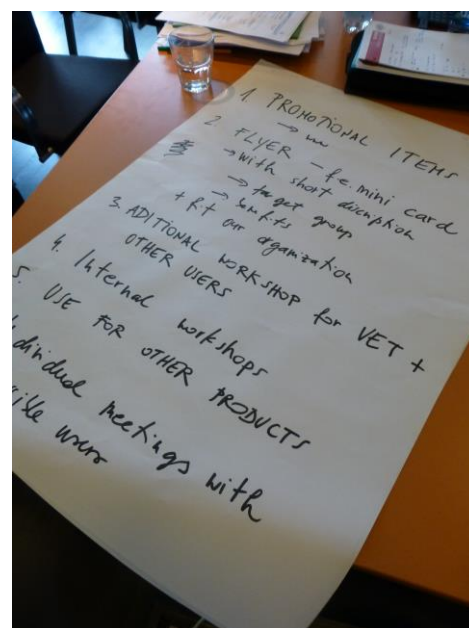 1. PROMOTIONAL ITEMS
→
2. FLYER – f.e. mini card
→ with short discription
→ target group
→ benefits
+ fit our organization
3. ADITIONAL WORKSHOP for VET +
OTHER USERS
4. Internal workshops
5. USE FOR OTHER PRODUCTS
individual meetings with
users